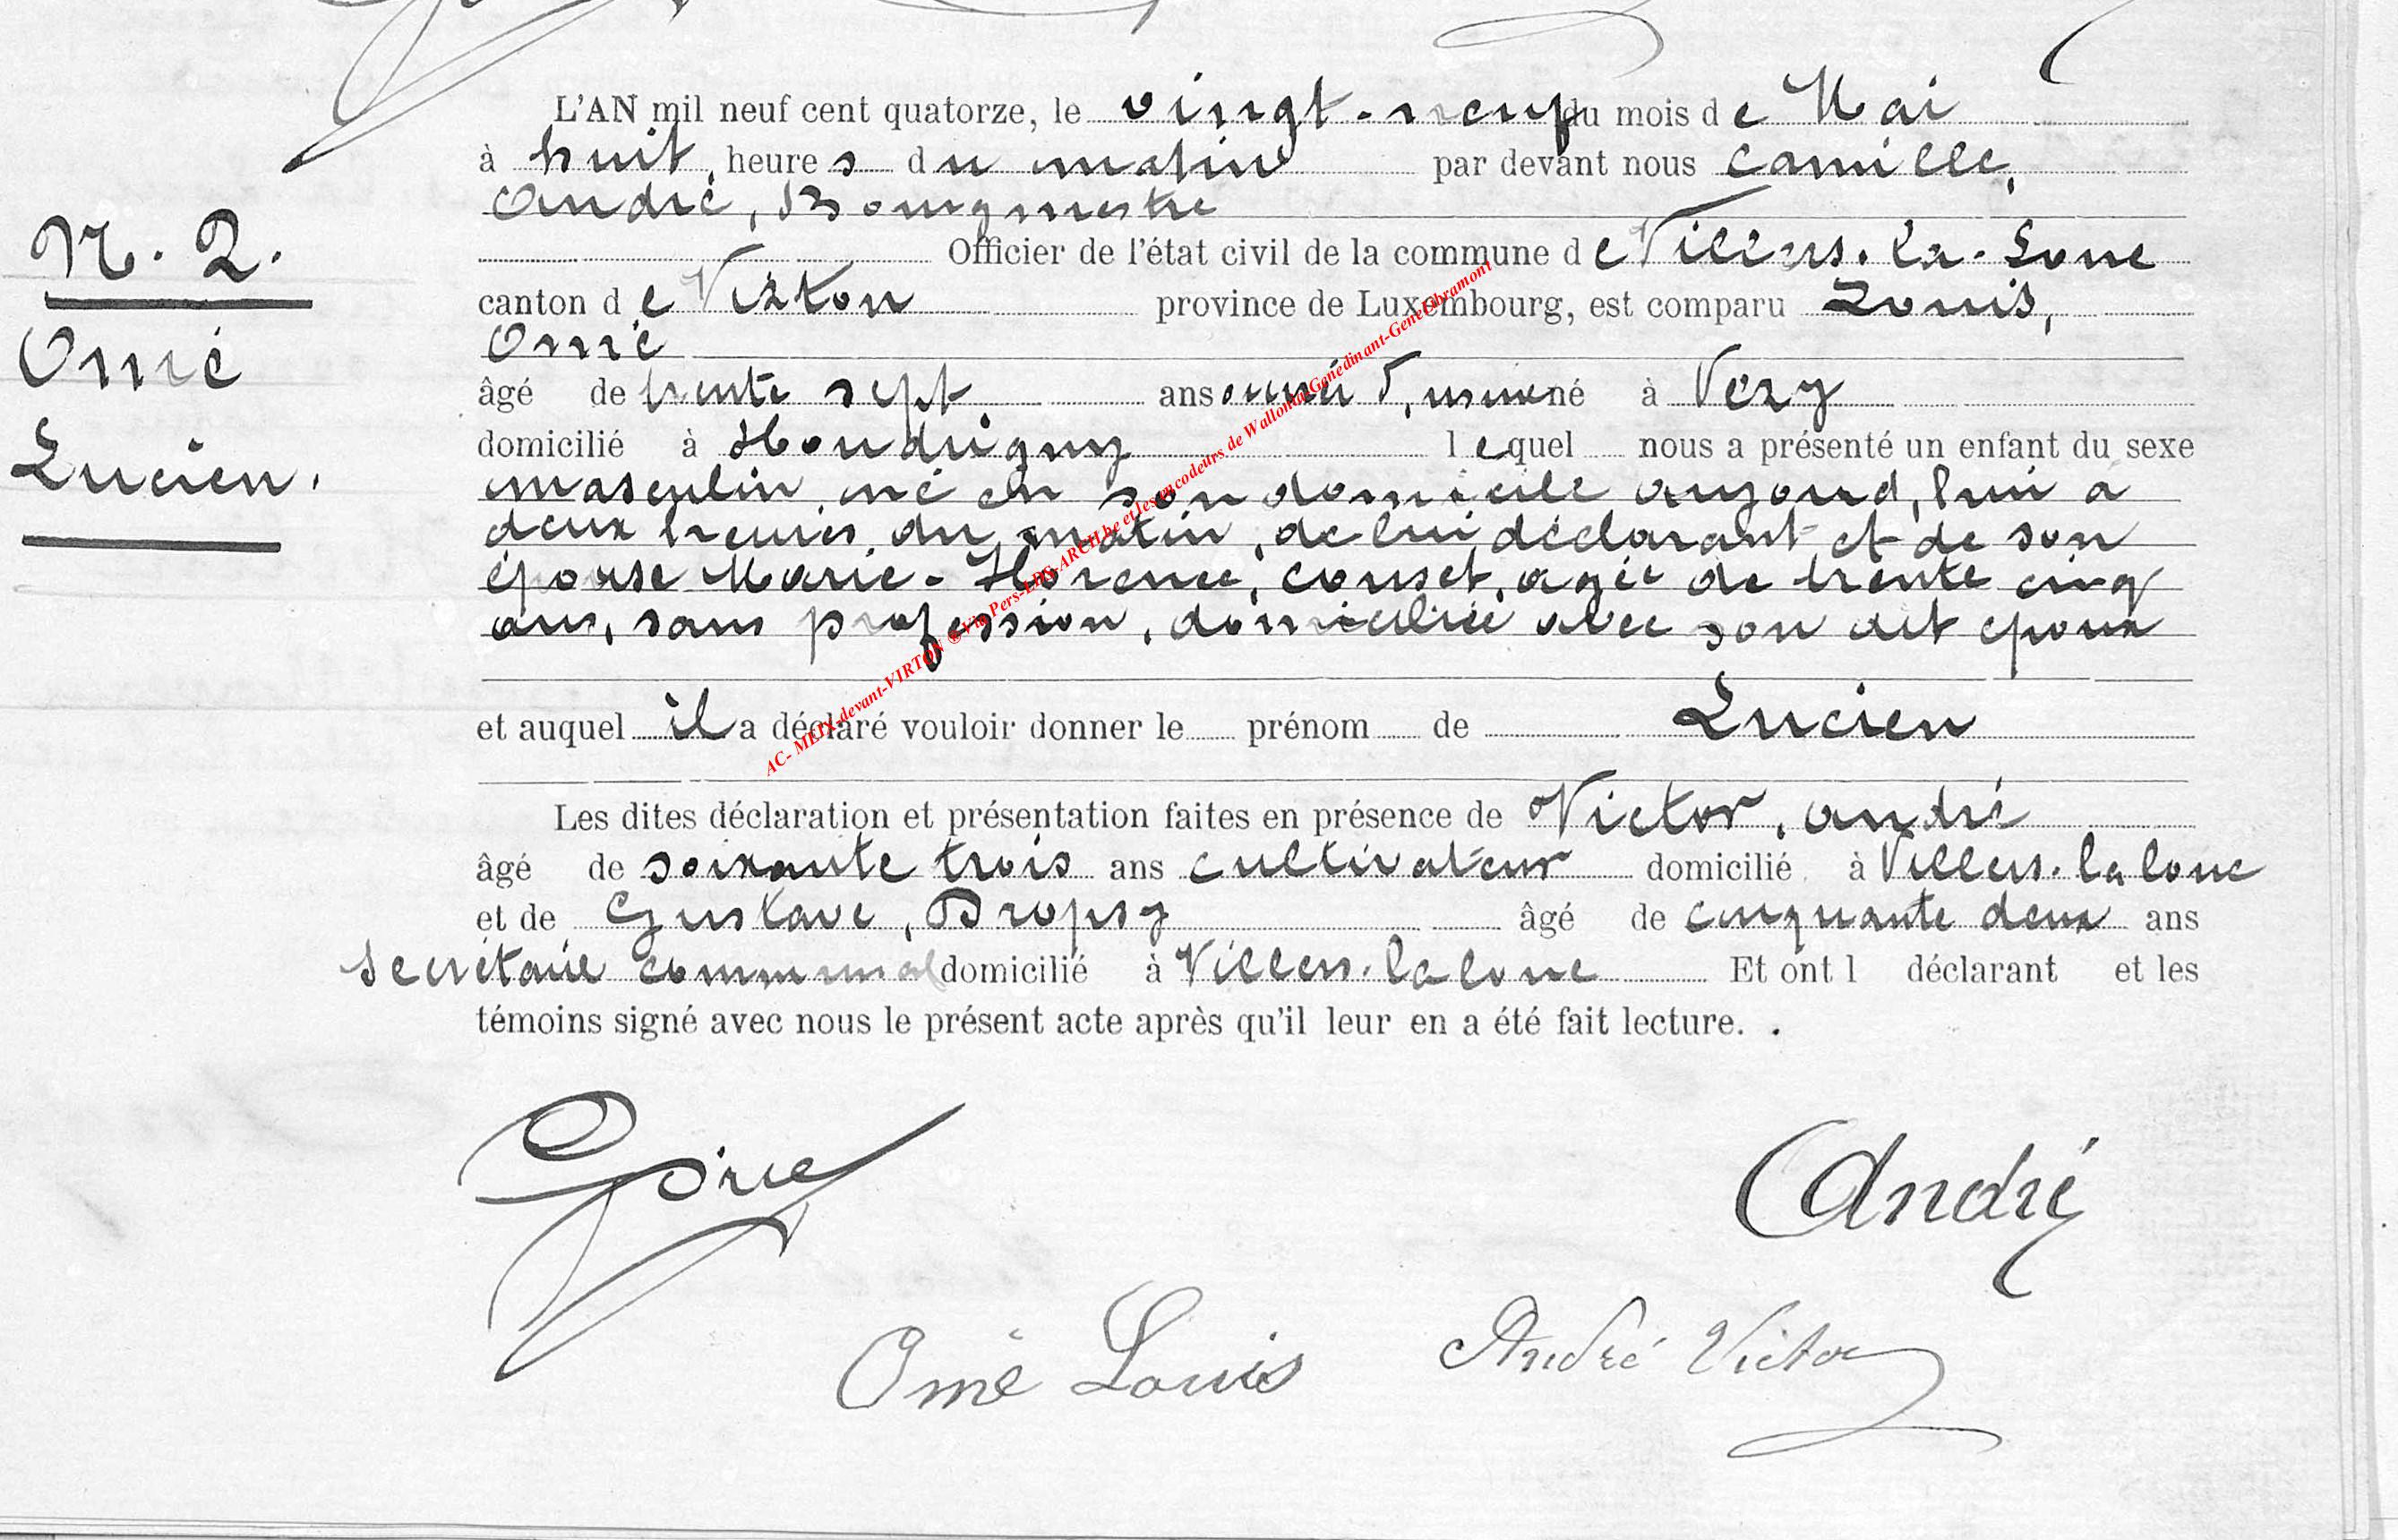 L'AN mil neuf cent quatorze, le vingt-neuf du mois de Mai
à huit heures du matin par devant nous Camille,
André, Bourgmestre
Officier de l'état civil de la commune de Villers-la-Loue
canton de Virton province de Luxembourg, est comparu Louis,
Omé
âgé de trente sept ans ouvrier d'usine né à
domicilié à Houdrigny lequel nous a présenté un enfant du sexe
masculin né en son domicile aujourd'hui à
deux heures du matin, de lui déclarant et de son
épouse Marie-Florence, agée de trente cinq
ans, sans profession, domiciliée avec son dit époux
et auquel il a déclaré vouloir donner le prénom de Lucien
Les dites déclaration et présentation faites en présence de Victor, André
âgé de soixante trois ans cultivateur domicilié à Villers-la loue
et de Gustave, Dropsy âgé de cinquante deux ans
secrétaire communal domicilié à Villers-la loue Et ont l déclarant et les
témoins signé avec nous le présent acte après qu'il leur en a été fait lecture.
N. 2.
Omé
Lucien.
André
Omé Louis
André Victor
AC- MEIX-devant-VIRTON